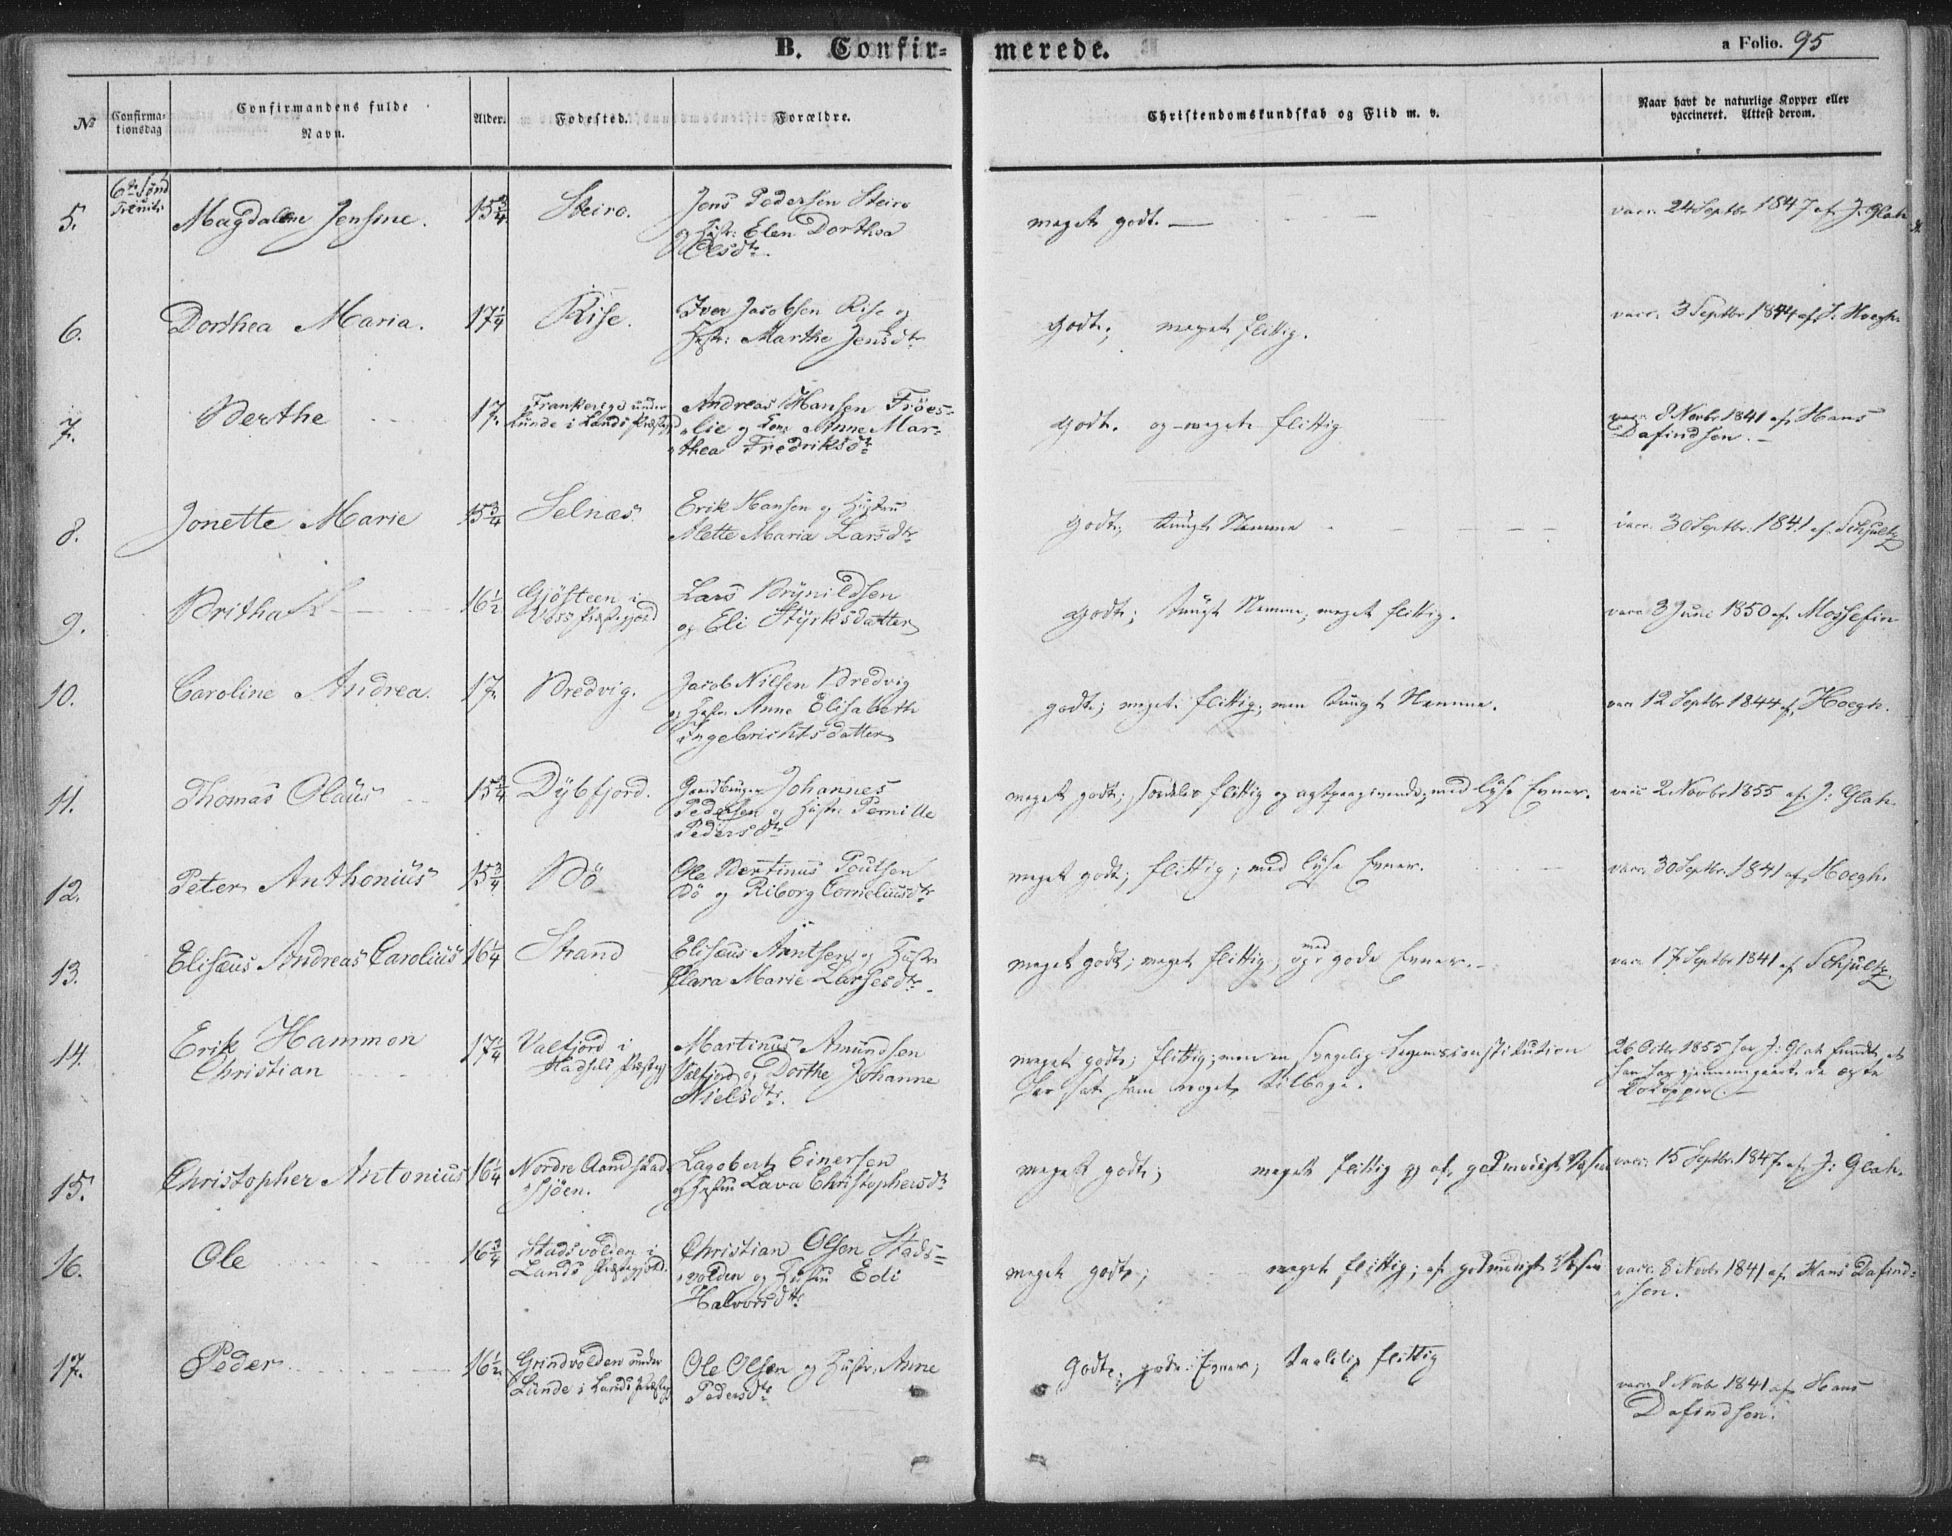 B. Confir=merede.
a Folio. 95
No
Confirma-
tionsdag
Confirmandens fulde
Navn.
Alder.
Fødested.
Forældre.
Christendomskundskab og Flid m. v.
Naar havt de naturlige Kopper eller
vaccineret. Attest derom.
5. 6te Sønd Trinit: Magdalene Jensine. 15 3/4 Steiro. Jens Pedersen Steiro
og Hustr: Elen Dorthea
Olsdtr.
meget godt. — vacc. 24 Septbr 1847 af J. Glah.
6. Dorthea Maria. 17 1/4 Rise. Iver Jacobsen Rise og
Hustr: Marthe Jensdtr
godt; meget flittig. vacc. 3 Septbr 1844 af J. Hoegh.
7. Berthe 17. under
Lunde i Lands Præstegj
Andreas Hansen Fröes-
lie og Kone Anne Mar-
thea Fredriksdtr
godt. og meget flittig vacc. 8 Novbr 1841 af Hans
Dafindsen. —
8. Jonette Marie 15 3/4 Selnæs. Erik Hansen og Hustru
Mette Maria Larsdtr
godt; tungt Nemme vacc. 30 Septbr. 1841 af Schjultz
9. Britha 16 1/2 Gjösteen i
Voss Præstegjeld
Lars Brynildsen
og Eli Styrksdatter
godt; tungt Nemme, meget flittig. vacc. 3 June 1850 af Mossefin
10. Caroline Andrea. 17. Bredvig. Jacob Nilsen Bredvig
og Hustr: Anne Elisabeth
Ingebrichtsdatter
godt; meget flittig; men tungt Nemme. vacc 12 Septbr 1844 af Hoegh.
11. Thomas Olaus 15 3/4 Dybfjord. Gaardbruger Johannes
Pedersen og Hustr. Pernille
Pedersdtr
meget godt; særdeles flittig og agtpaagivende; med lyse Evner. vacc 2 Novbr 1855 af J: Glah.
12. Peter Anthonius 15 3/4 Bö Ole Bertinus Poulsen
Bö og Riborg Corneliusdtr
meget godt; flittig; med lyse Evner. vacc. 30 Septbr. 1841 af Hoegh.
13. Elisæus Andreas Carolius 16 1/4 Strand Elisæus Arntsen og Hustr.
Clara Marie Larsesdtr.
meget godt; meget flittig; med gode Evner. — vacc 17 Septbr 1841 af Schjultz
14. Erik Hammon
Christian
17 1/4 Valfjord i
Hadsels Præstegj
Martinus Amundsen
Valfjord og Dorthe Johanne
Nielsdtr.
meget godt; flittig; men en svagelig Legemsconstitution
har sat ham meget tilbage.
26 Octbr 1855 har J: Glah fundet, at
han har gjennemgaaet de ægte
Kopper. —
15. Christopher Antonius 16 1/4 Nordre Aandstad
sjöen.
Lagobert Einersen
og Hustru Lava Christophersdtr
meget godt; meget flittig og af godmodigt Væsen vacc. 15 Septbr 1847 af J: Glah.
16. Ole 16 3/4 Stadsvolden i
Lands Præstegjeld.
Christian Olsen Stads=
volden og Hustru Edi
Halvorsdtr
meget godt; meget flittig; af godmodigt Væsen vacc. 8 Novbr 1841 af Hans Dafind=
sen.
17. Peder 16 1/2 Grindvolden under
Lunde i Lands Præstegj
Ole Olsen og Hustr. Anne
Pedersdtr
Godt; gode Evner; taalelig flittig
vacc 8 Novbr 1841 af Hans
Dafindsen.